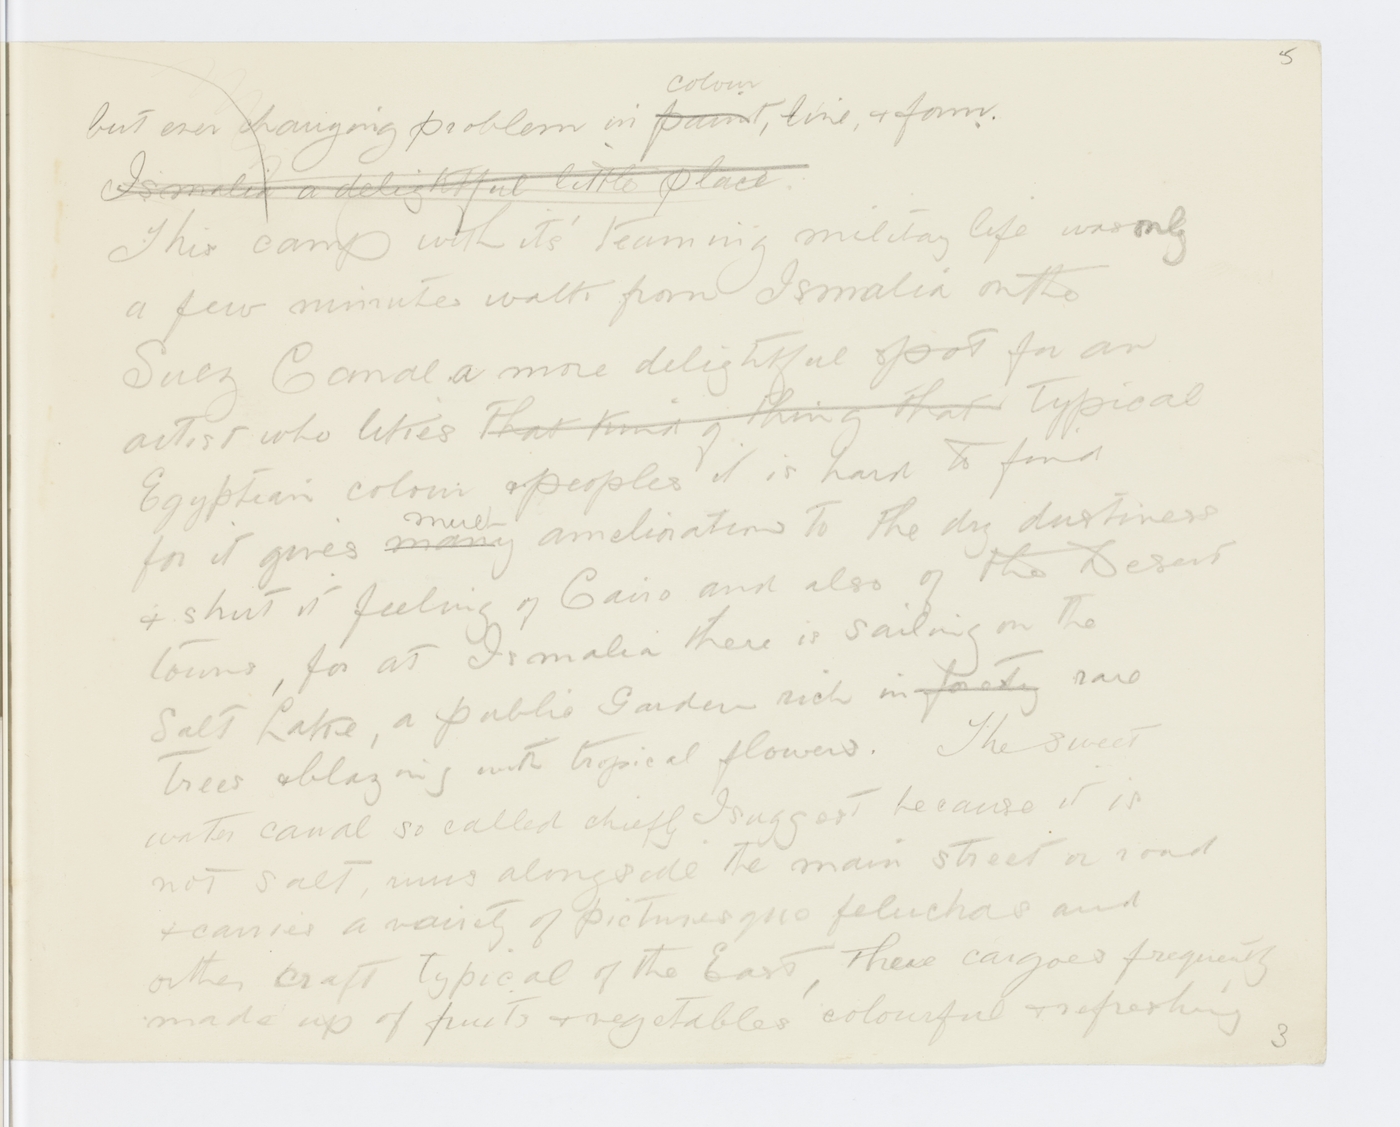 5
colour
but ever changing problem in paint, line, + form.
Ismalia a delightful little place.
This camp with its' teaming military life was only
a few minutes walk from Ismalia on the
Suez Canal a more delightful spot for an
artist who likes that kind of thing that typical
Egyptian colour & peoples it is hard to find
much
for it gives many ameliorations to the dry dustiness
+ shut it feeling of Cairo and also of the Desert
towns, for at Ismalia there is sailing on the
Salt Lake, a public Garden rich in rare
trees & blazing with tropical flowers. The sweet
water canal so called chiefly I suggest because it is
not salt, runs alongside the main street or road
+ carries a variety of picturesque feluchas and
other craft typical of the East, there cargoes frequently
made up of fruits + vegetables colourful + refreshing
3